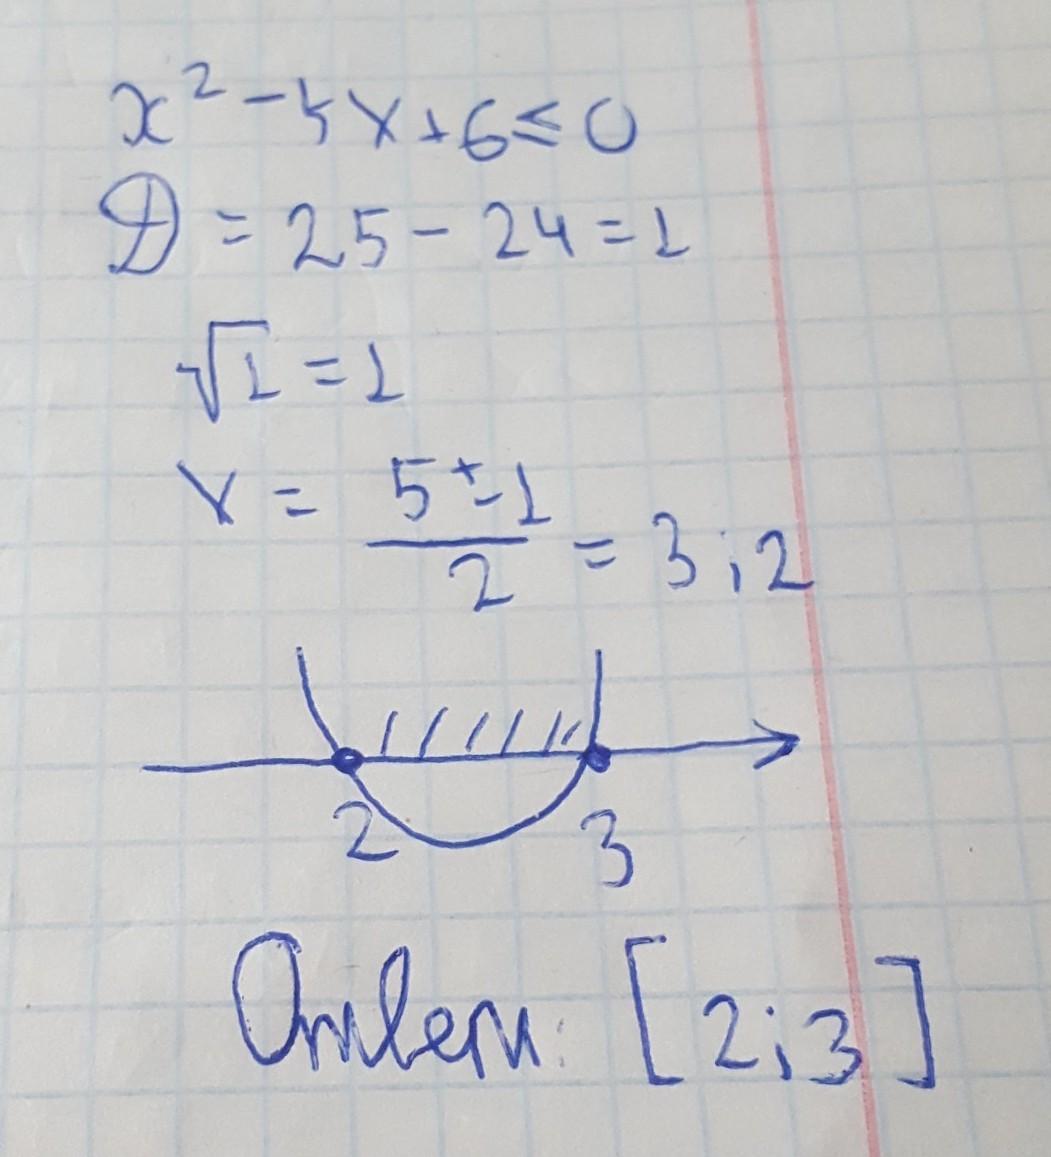 x² - 5x + 6 ≤ 0
D = 25 - 24 = 1
√1 = 1
x = (5 ± 1)/2 = 3; 2
2 3
Ответ: [2; 3]